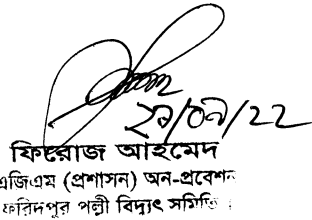 ২১/০৯/২২
ফিরোজ আহমেদ
এজিএম (প্রশাসন) অন-প্রবেশন
ফরিদপুর পল্লী বিদ্যুৎ সমিতি